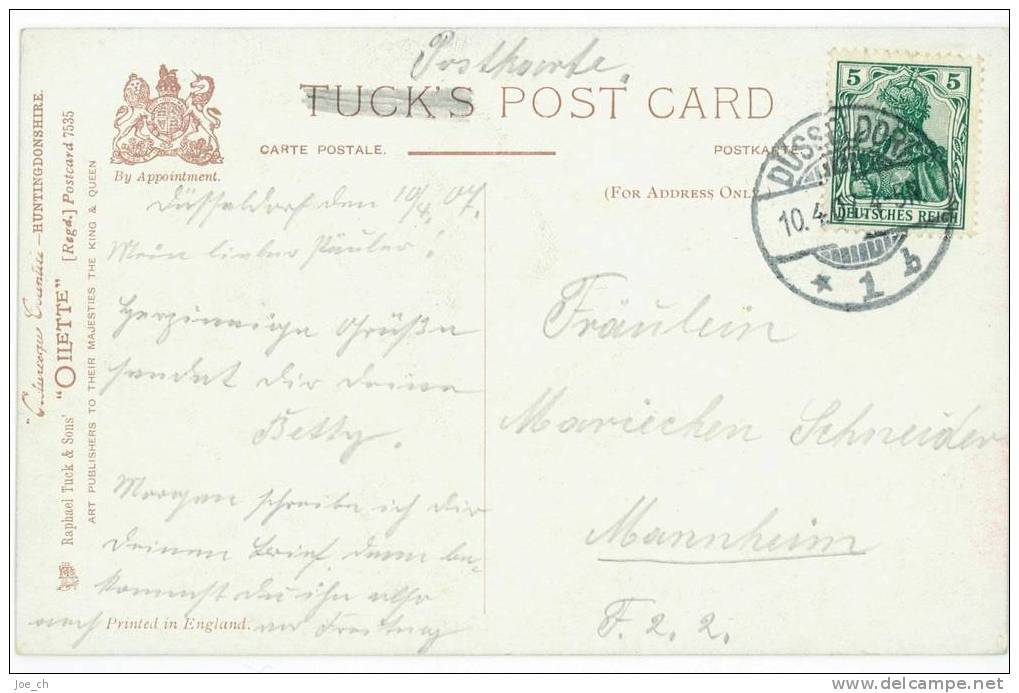 Postkarte.
TUCK'S POST CARD
CARTE POSTALE.
POSTKARTE
(FOR ADDRESS ONLY
By Appointment.
5 5
DEUTSCHES REICH
DÜSSELDORF
10.4. 4-5N
* 1 b
Düsseldorf den 10/4. 07.
Mein lieber
Herzinnige Grüße
sendet Dir Deine
Betty.
Morgen schreibe ich Dir
Deinen Brief, dann be-
kommst Du ihn also
auch an Freitag
Printed in England.
Fräulein
Mariechen Schneider
Mannheim
F. 2. 2.
"Picturesque Counties"—HUNTINGDONSHIRE.
Raphael Tuck & Sons' "OILETTE" [Regd.] Postcard 7535
ART PUBLISHERS TO THEIR MAJESTIES THE KING & QUEEN
joe_ch
www.delcampe.net